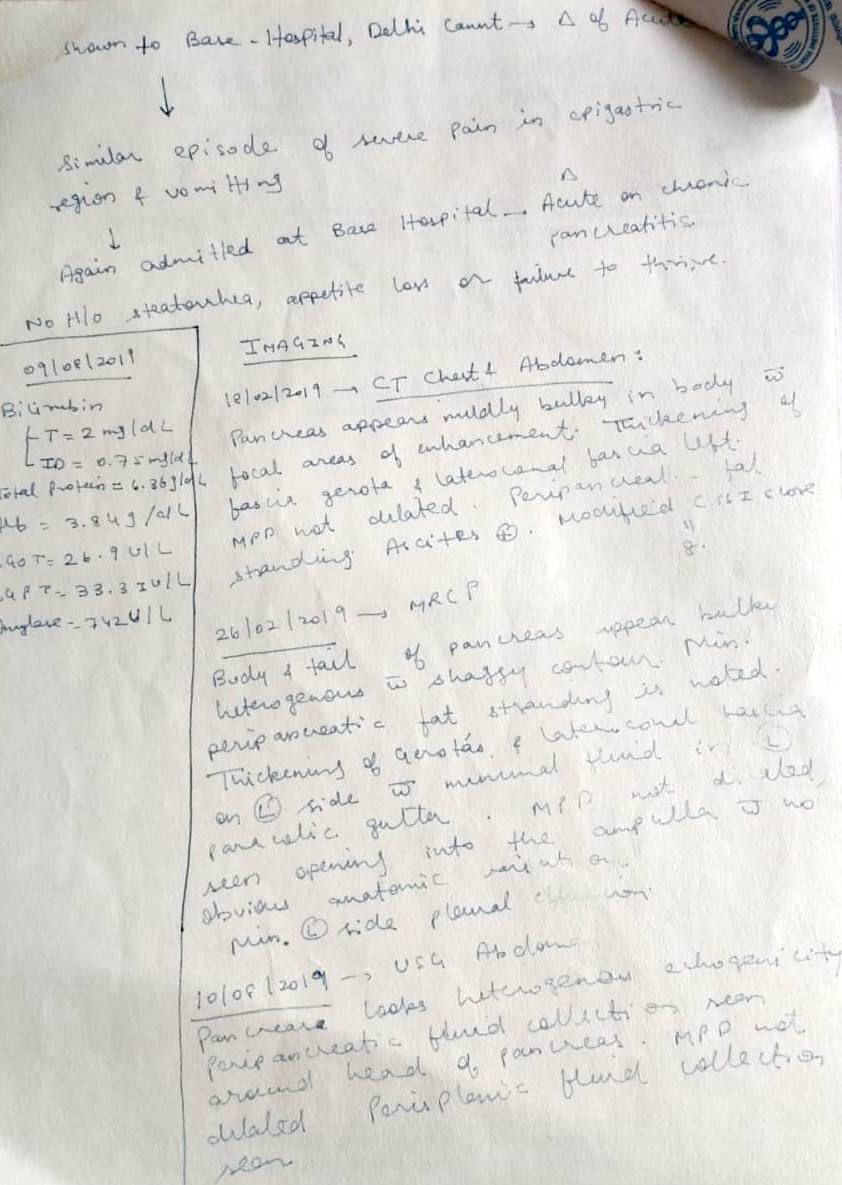 Shown to Base - Hospital, Delhi Cannt → Δ of Acute
↓
Similar episode of severe pain in epigastric
region & vomitting
↓
Again admitted at Base Hospital → Δ Acute on chronic
pancreatitis
No H/o steatorrhea, appetite loss or failure to thrive.
09/08/2019
Bilirubin
T = 2 mg/dL
ID = 0.75 mg/dL
Total Protein = 6.36 g/dL
= 3.84 g/dL
GOT = 26.9 U/L
GPT = 33.3 IU/L
Amylase = 742 U/L
IMAGING
18/02/2019 → CT Chest & Abdomen :
Pancreas appears mildly bulky in body w̄
focal areas of enhancement. Thickening of
fascia gerota & lateroconal fascia left.
MPD not dilated. Peripancreat.. fat
stranding. Ascites ⊕. Modified CTSI score
"
8.
26/02/2019 → MRCP
Body & tail of pancreas appear bulky
heterogenous w̄ shaggy contour. Min.
peripancreatic fat stranding is noted.
Thickening of Gerotas & lateroconal fascia
on Ⓛ side w̄ minimal fluid in Ⓛ
paracolic gutter. MPD not dilated,
seen opening into the ampulla w̄ no
obvious anatomic variation.
Min. Ⓛ side pleural effusion.
10/08/2019 → USG Abdomen
Pancreas looks heterogenous echogenicity
Peripancreatic fluid collection seen
around head of pancreas. MPD not
dilated Perisplenic fluid collection
seen.